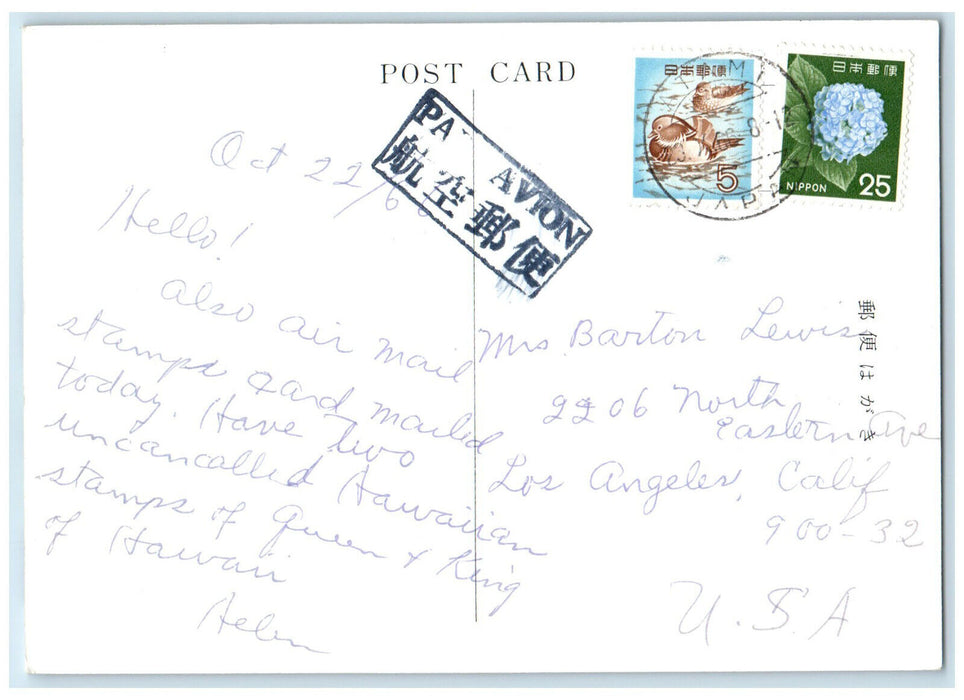 POST CARD
日本郵便
5
日本郵便
NIPPON 25
PAR AVION
航空郵便
JAPAN
Oct 22/66
Hello!
Also air mail
stamps card mailed
today. Have two
uncancalled Hawaiian
stamps of Queen & King
of Hawaii
Helen
Mrs. Barton Lewis
2206 North
Eastern Ave
Los Angeles, Calif
900-32
U.S.A
郵便はがき